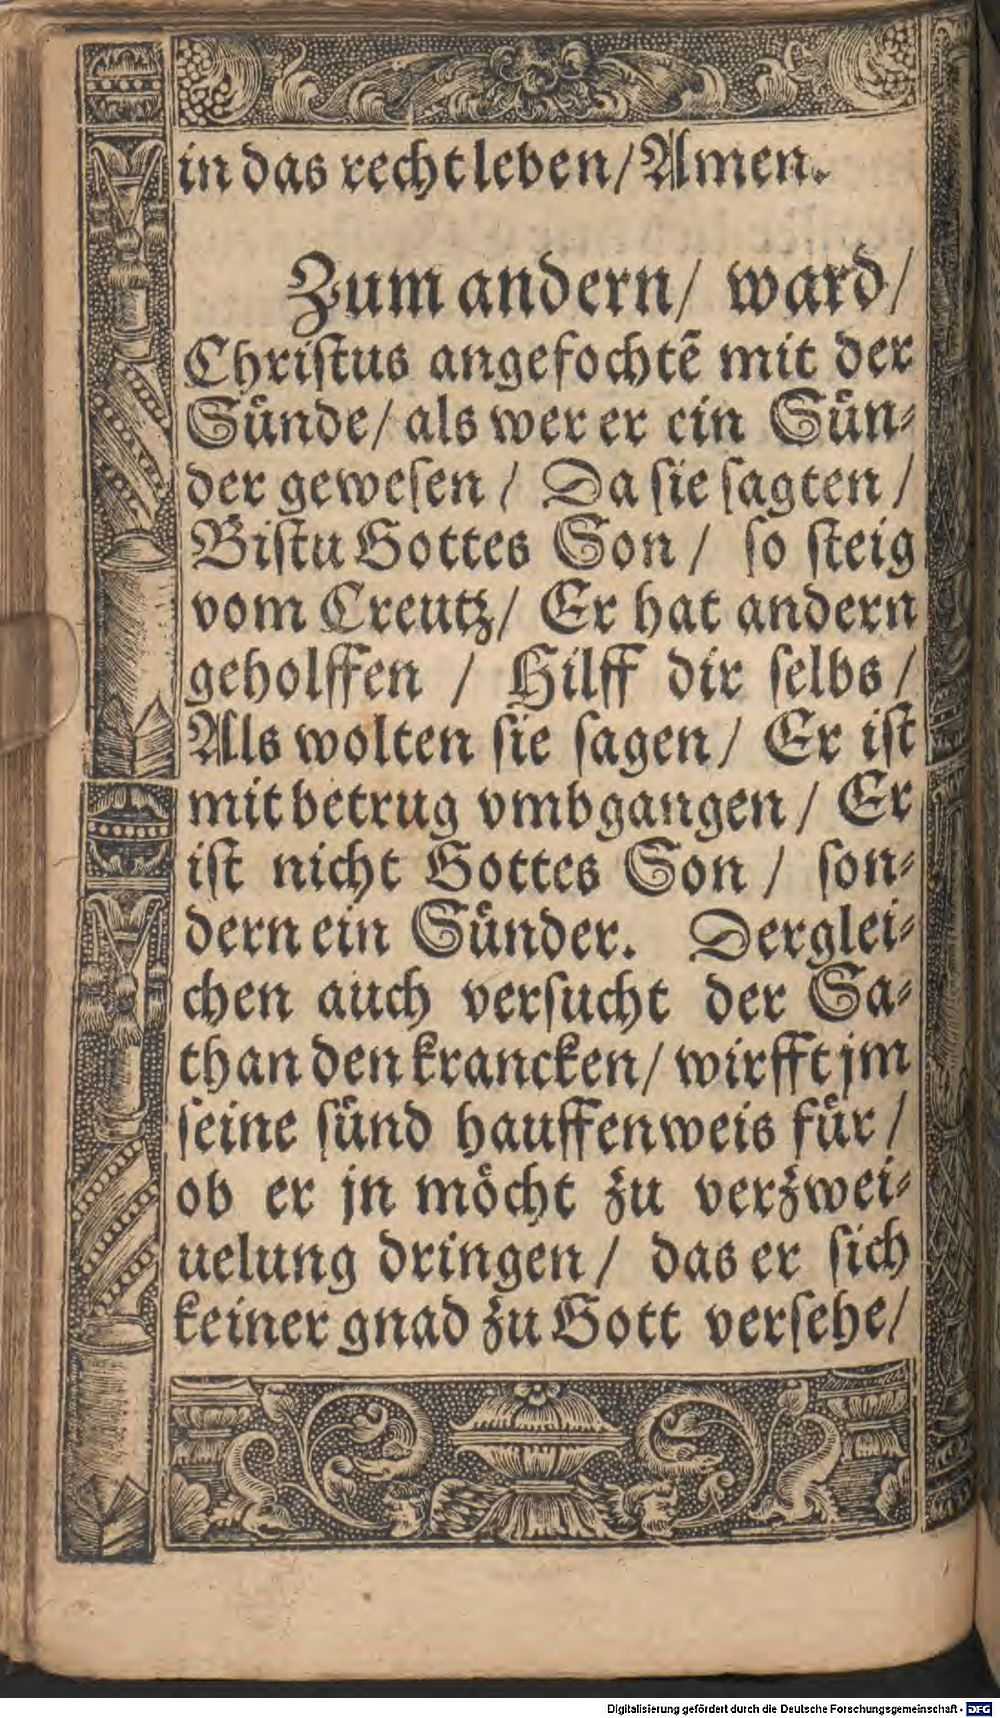 in das recht leben/Amen.
Zum andern/ ward/
Christus angefochtẽ mit der
Suͤnde/ als wer er ein Suͤn⸗
der gewesen / Da sie sagten /
Bistu Gottes Son / so steig
vom Creutz/ Er hat andern
geholffen / Hilff dir selbs /
Als wolten sie sagen/ Er ist
mit betrug vmbgangen / Er
ist nicht Gottes Son / son⸗
dern ein Suͤnder. Derglei⸗
chen auch versucht der Sa⸗
than den krancken/ wirfft jm
seine suͤnd hauffenweis fuͤr /
ob er jn moͤcht zu verzwei⸗
uelung dringen / das er sich
keiner gnad zu Gott versehe/
Digitalisierung gefördert durch die Deutsche Forschungsgemeinschaft - DFG